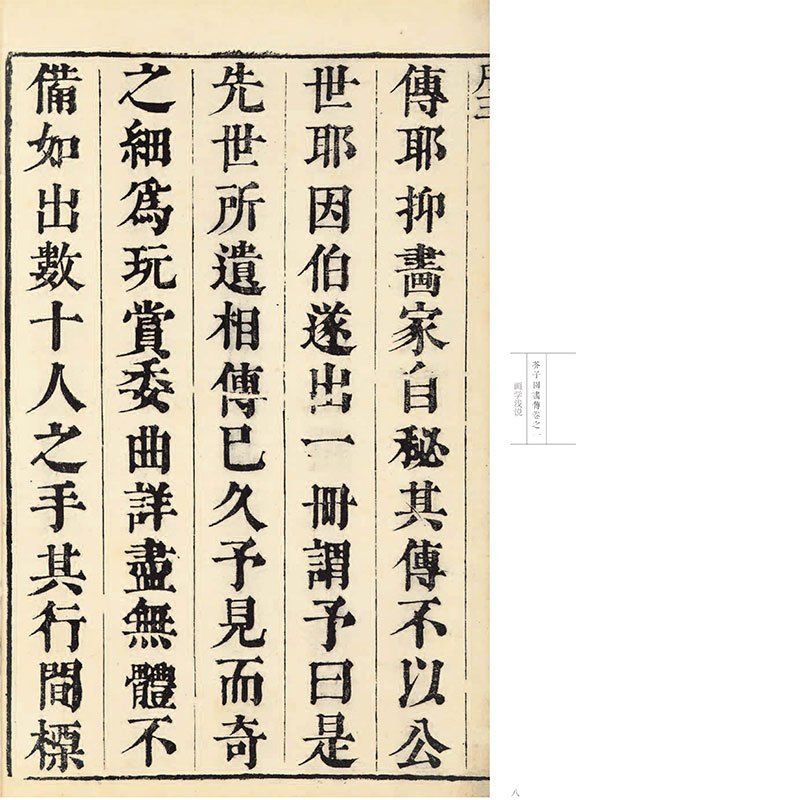 序三
傳耶抑畫家自秘其傳不以公
世耶因伯遂出一冊謂予曰是
先世所遺相傳已久予見而奇
之細爲玩賞委曲詳盡無體不
備如出數十人之手其行間標
芥子園畫傳卷之一
画学浅说
八